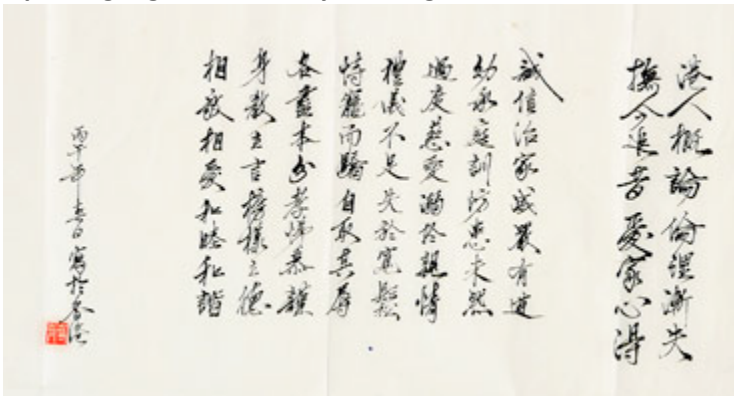 港人概論倫理漸失
撫今追昔愛家心得
誠信治家威嚴有道
幼承庭訓防患未然
過度慈愛溺於親情
禮儀不足失於寬鬆
恃寵而驕自取其辱
各盡本分孝悌恭謙
身教言榜樣之德
相敬相愛和睦和諧
丙午年春日寫於香港